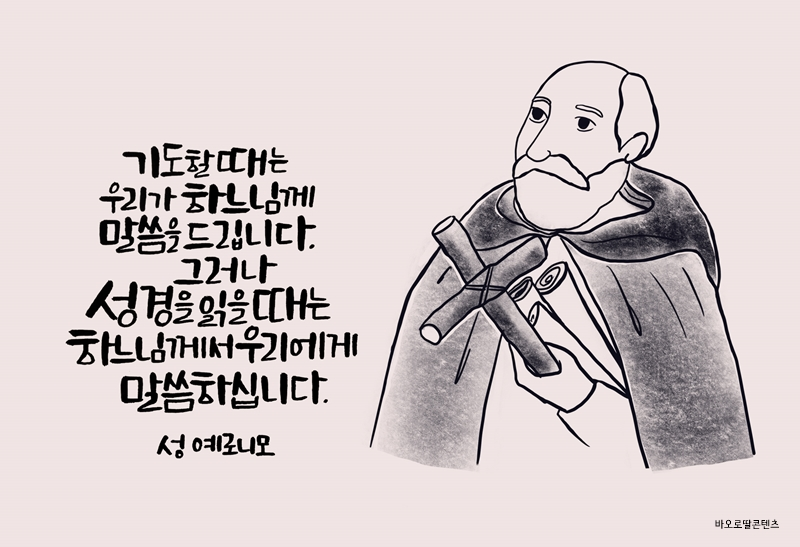 기도할 때는
우리가 하느님께
말씀을 드립니다.
그러나
성경을 읽을 때는
하느님께서 우리에게
말씀하십니다.
성 예로니모
바오로딸콘텐츠